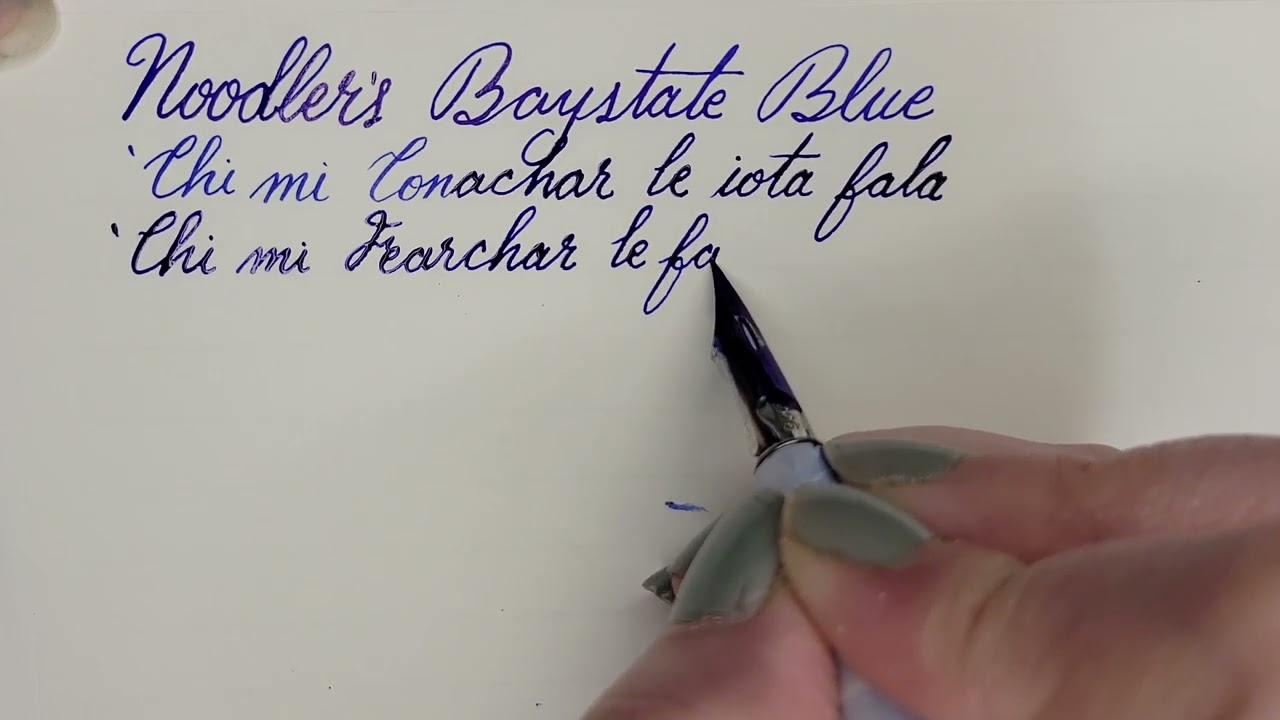 Noodler's Baystate Blue
'Chi mi Conachar le iota fala
'Chi mi Fearchar le fa